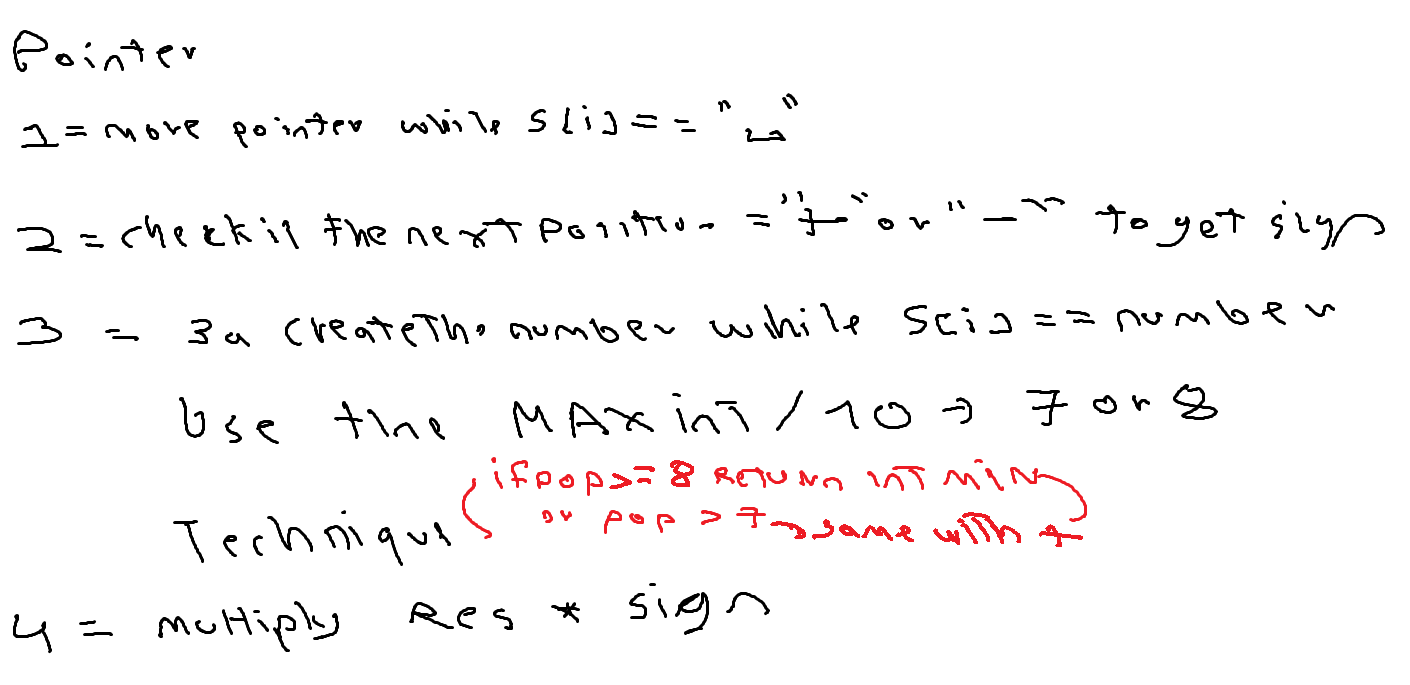 Pointer
1 = move pointer while s[i] == "␣"
2 = check if the next position = "+" or "-" to get sign
3 = 3a create the number while s[i] == number
Use the MAX int / 10 → 7 or 8
if pop >= 8 Return INT MIN
or pop > 7 → same with +
Techniqus
4 = multiply Res * sign